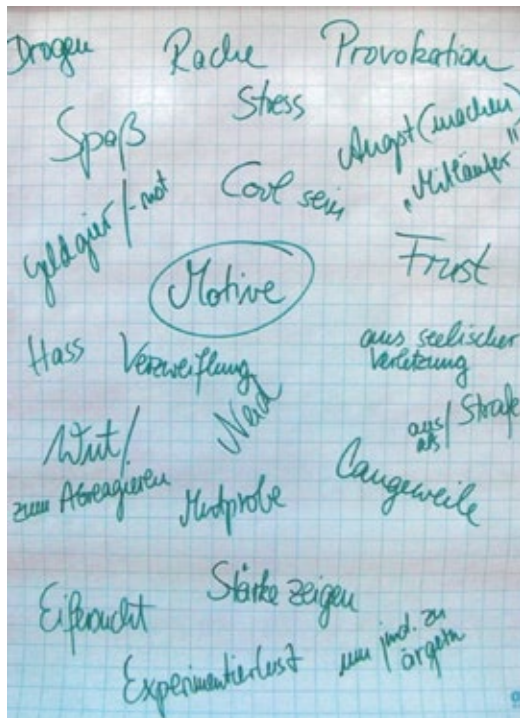 Drogen Rache Provokation
Stress
Spaß
Angst (machen)
"Mitläufer"
Geldgier/-not
Cool sein
Frust
Motive
Hass Verzweiflung
aus seelischer
Verletzung
Neid
aus/als Strafe
Wut/
zum Abreagieren
Mutprobe
Langeweile
Stärke zeigen
Eifersucht
um jmd. zu
ärgern
Experimentierlust